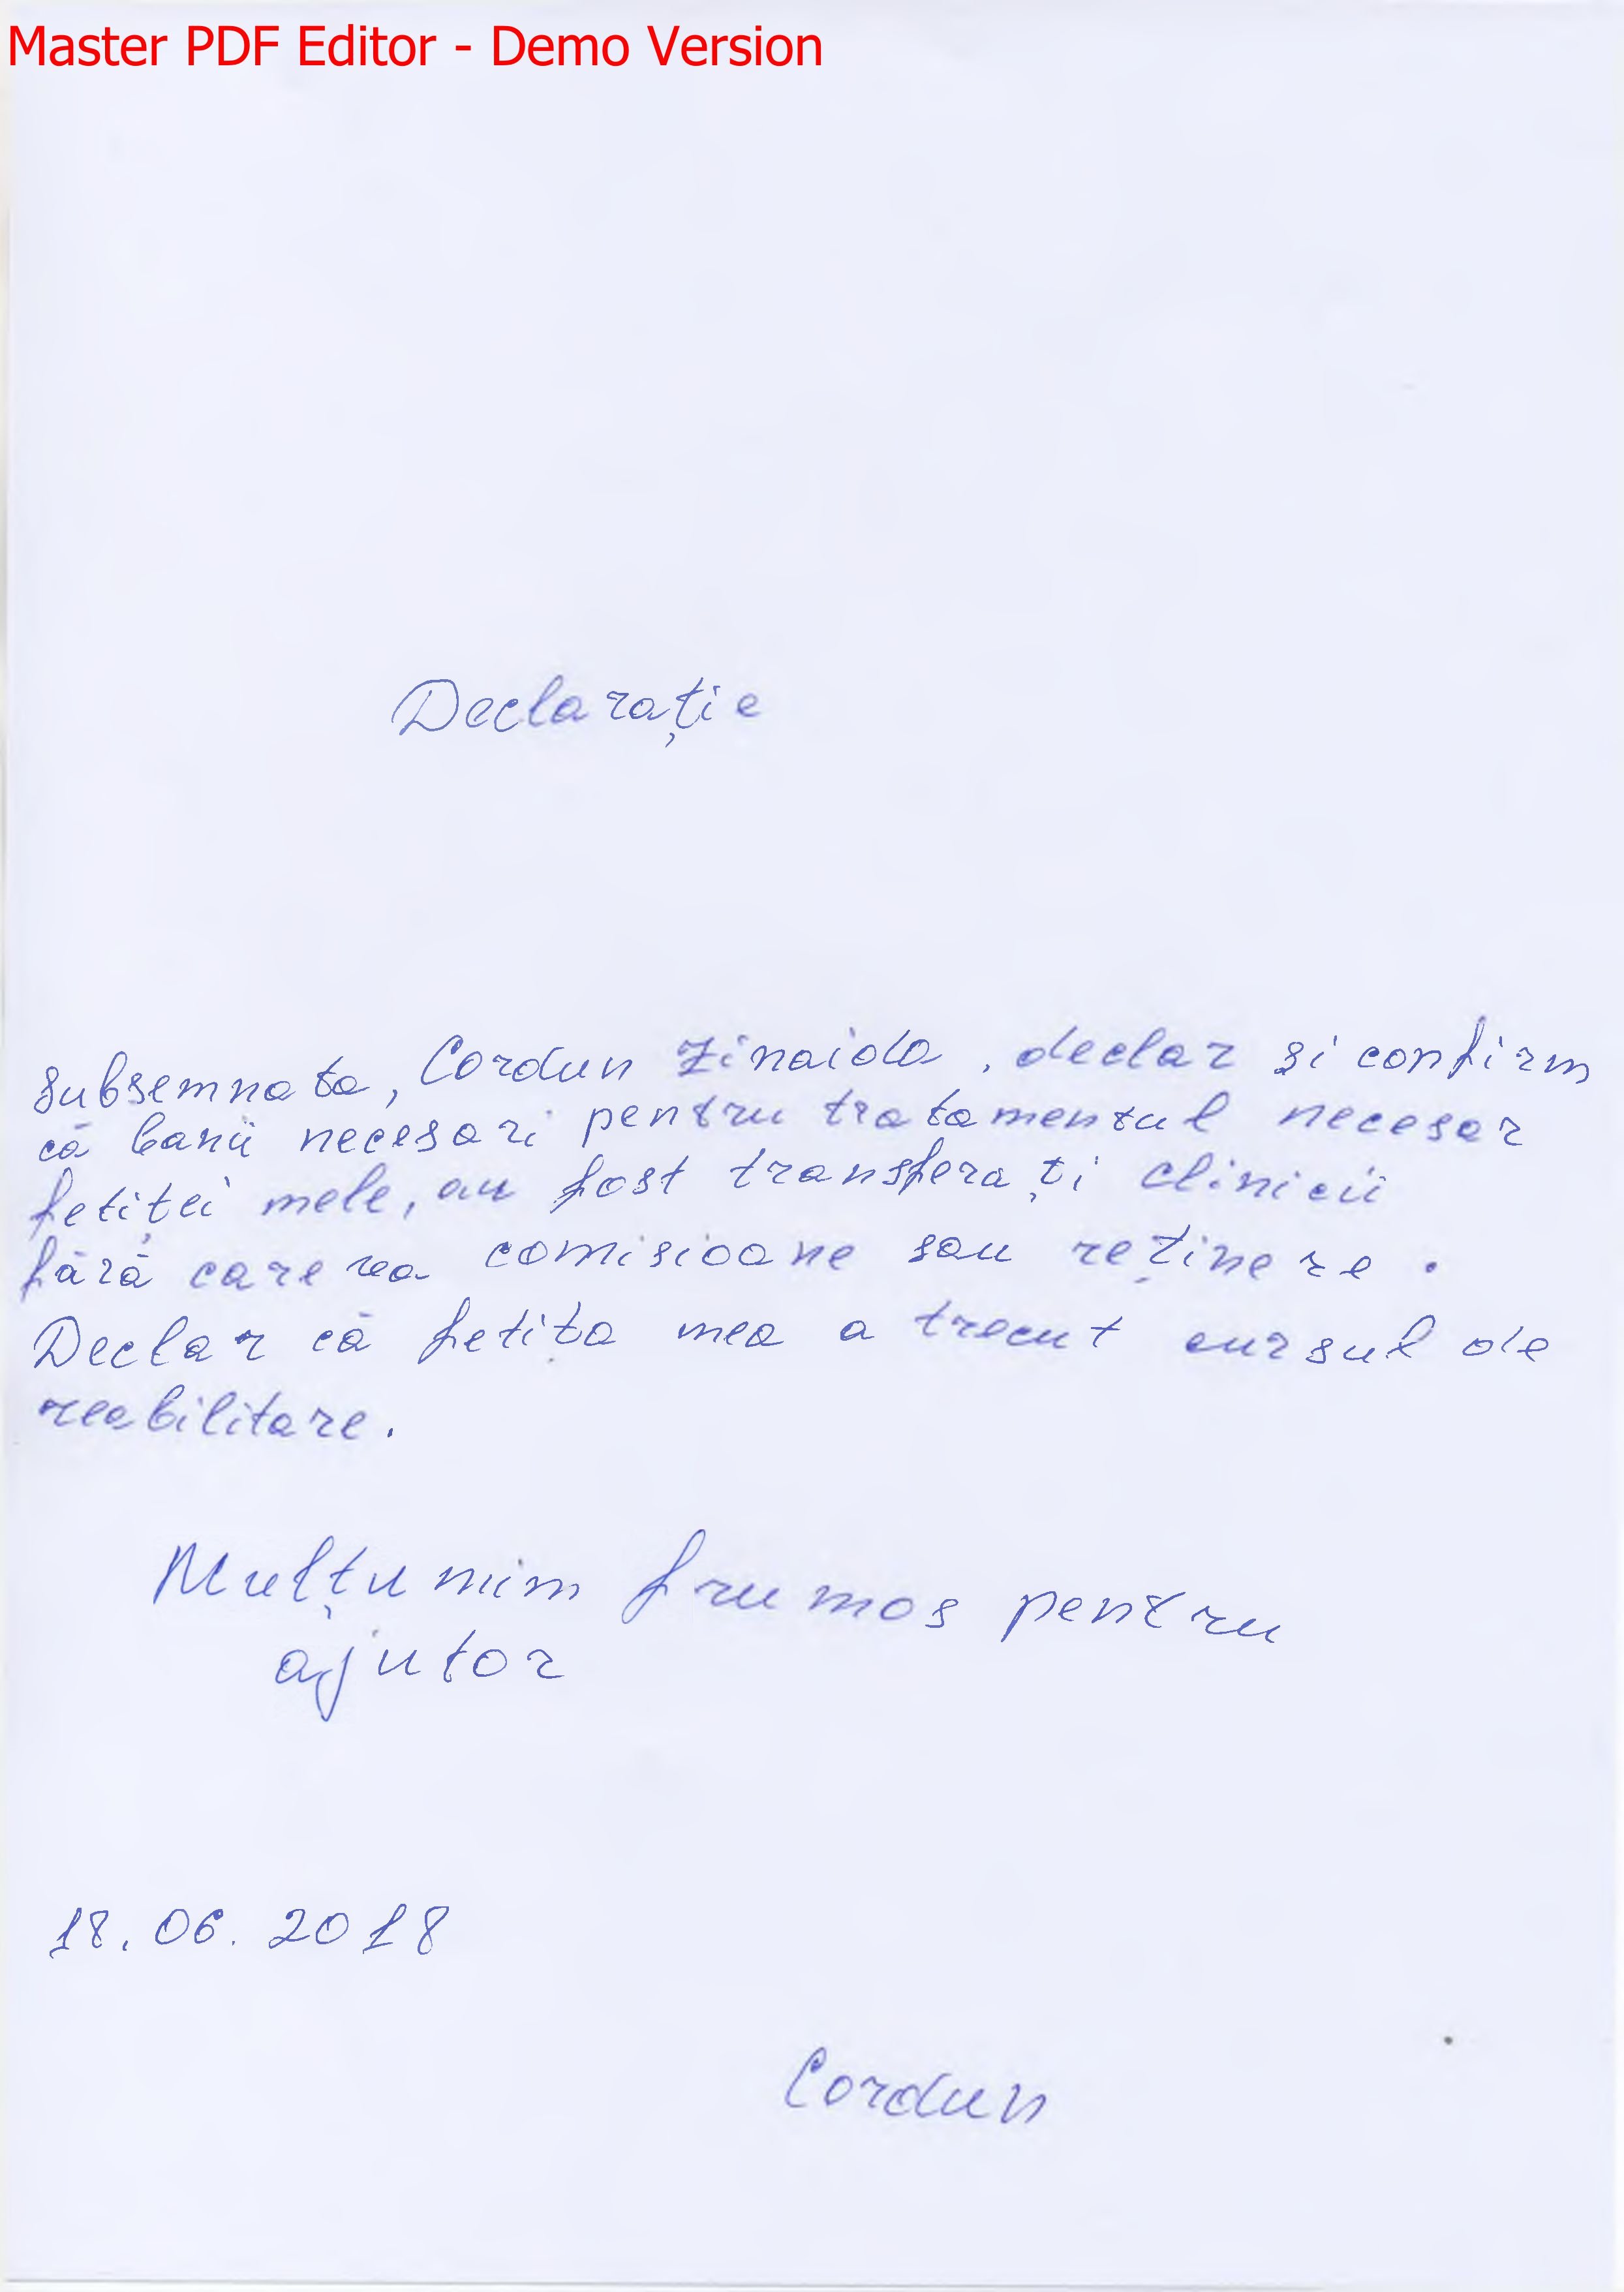 Master PDF Editor - Demo Version
Declarație
Subsemnata, Cordun Zinaida, declar și confirm
că banii necesari pentru tratamentul necesar
fetiței mele, au fost transferați clinicii
fără careva comisioane sau reținere.
Declar că fetița mea a trecut cursul de
reabilitare.
Mulțumim frumos pentru
ajutor
18.06.2018
Cordun